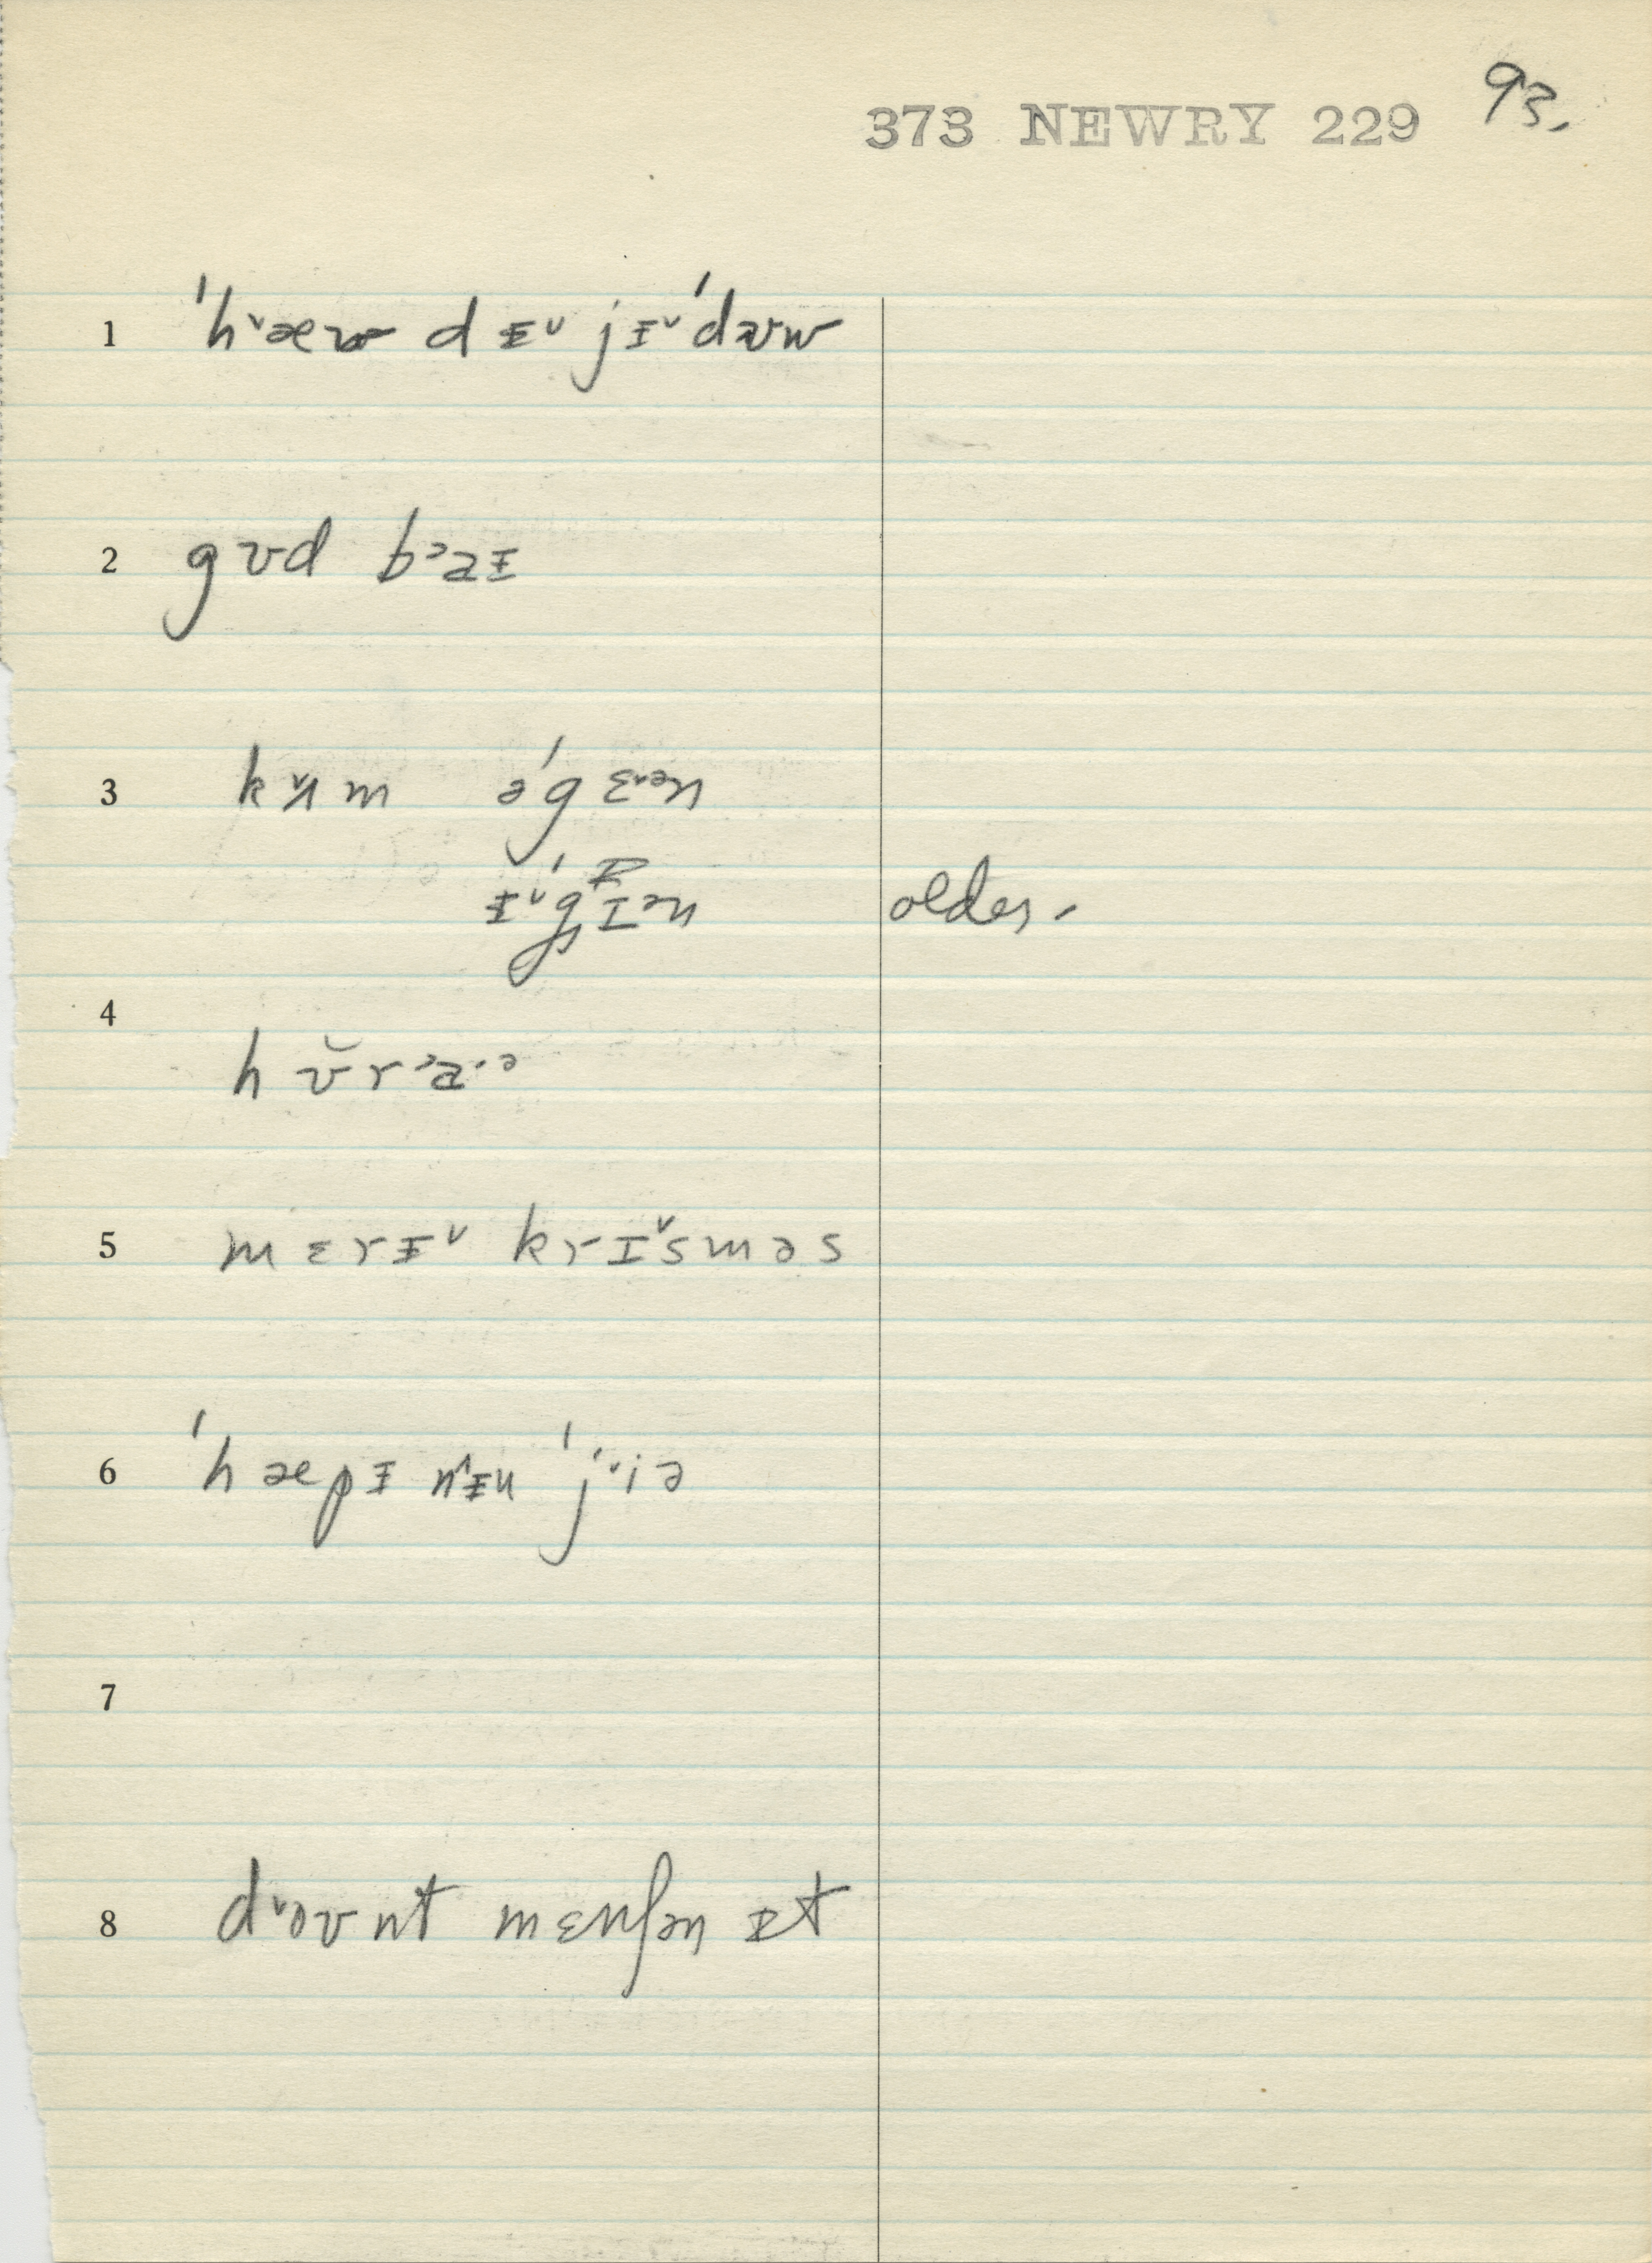 373 NEWRY 229 93.
1 ˈhᵛæʊ dᵻᵛ jᵻᵛˈdᵊʊw
2 gʊd bᵓaᵻ
3 kʌ̌m əˈgɛᵛᵊn
ᵻᵛˈgɪᵊn older.
4
hʊ̆rᵓa·ᵊ
5 mɛrᵻᵛ krɪᵛsməs
6 ˈhæpᵻ nᵻu ˈjᵛiə
7
8 dᵛoʊnt mɛnʃən ɪt